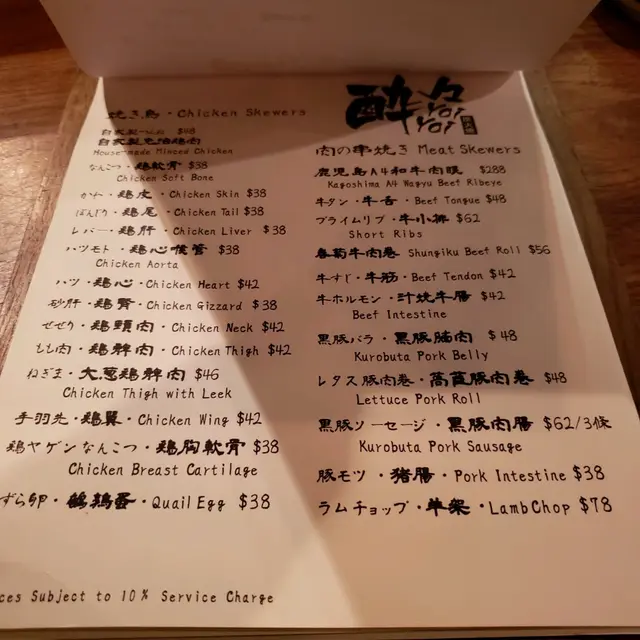 焼き鳥・Chicken Skewers
自家製つくね $48
自家製免治鶏肉
House-made Minced Chicken
なんこつ・鶏軟骨 $38
Chicken Soft Bone
かわ・鶏皮・Chicken Skin $38
ぼんじり・鶏尾・Chicken Tail $38
レバー・鶏肝・Chicken Liver $38
ハツモト・鶏心喉管 $38
Chicken Aorta
ハツ・鶏心・Chicken Heart $42
砂肝・鶏腎・Chicken Gizzard $38
せせり・鶏頸肉・Chicken Neck $42
もも肉・鶏髀肉・Chicken Thigh $42
ねぎま・大葱鶏髀肉 $46
Chicken Thigh with Leek
手羽先・鶏翼・Chicken Wing $42
鶏ヤゲンなんこつ・鶏胸軟骨 $38
Chicken Breast Cartilage
ずら卵・鵪鶉蛋・Quail Egg $38
ces Subject to 10% Service Charge
酔々
Yoi
Yoi
肉の串焼き Meat Skewers
鹿児島A4和牛肉眼 $288
Kagoshima A4 Wagyu Beef Ribeye
牛タン・牛舌・Beef Tongue $48
プライムリブ・牛小排 $62
Short Ribs
春菊牛肉卷 Shungiku Beef Roll $56
牛すじ・牛筋・Beef Tendon $42
牛ホルモン・汁焼牛腸 $42
Beef Intestine
黒豚バラ・黒豚腩肉 $48
Kurobuta Pork Belly
レタス豚肉巻・萵苣豚肉卷 $48
Lettuce Pork Roll
黒豚ソーセージ・黒豚肉腸 $62/3條
Kurobuta Pork Sausage
豚モツ・猪腸・Pork Intestine $38
ラムチョップ・羊架・Lamb Chop $78